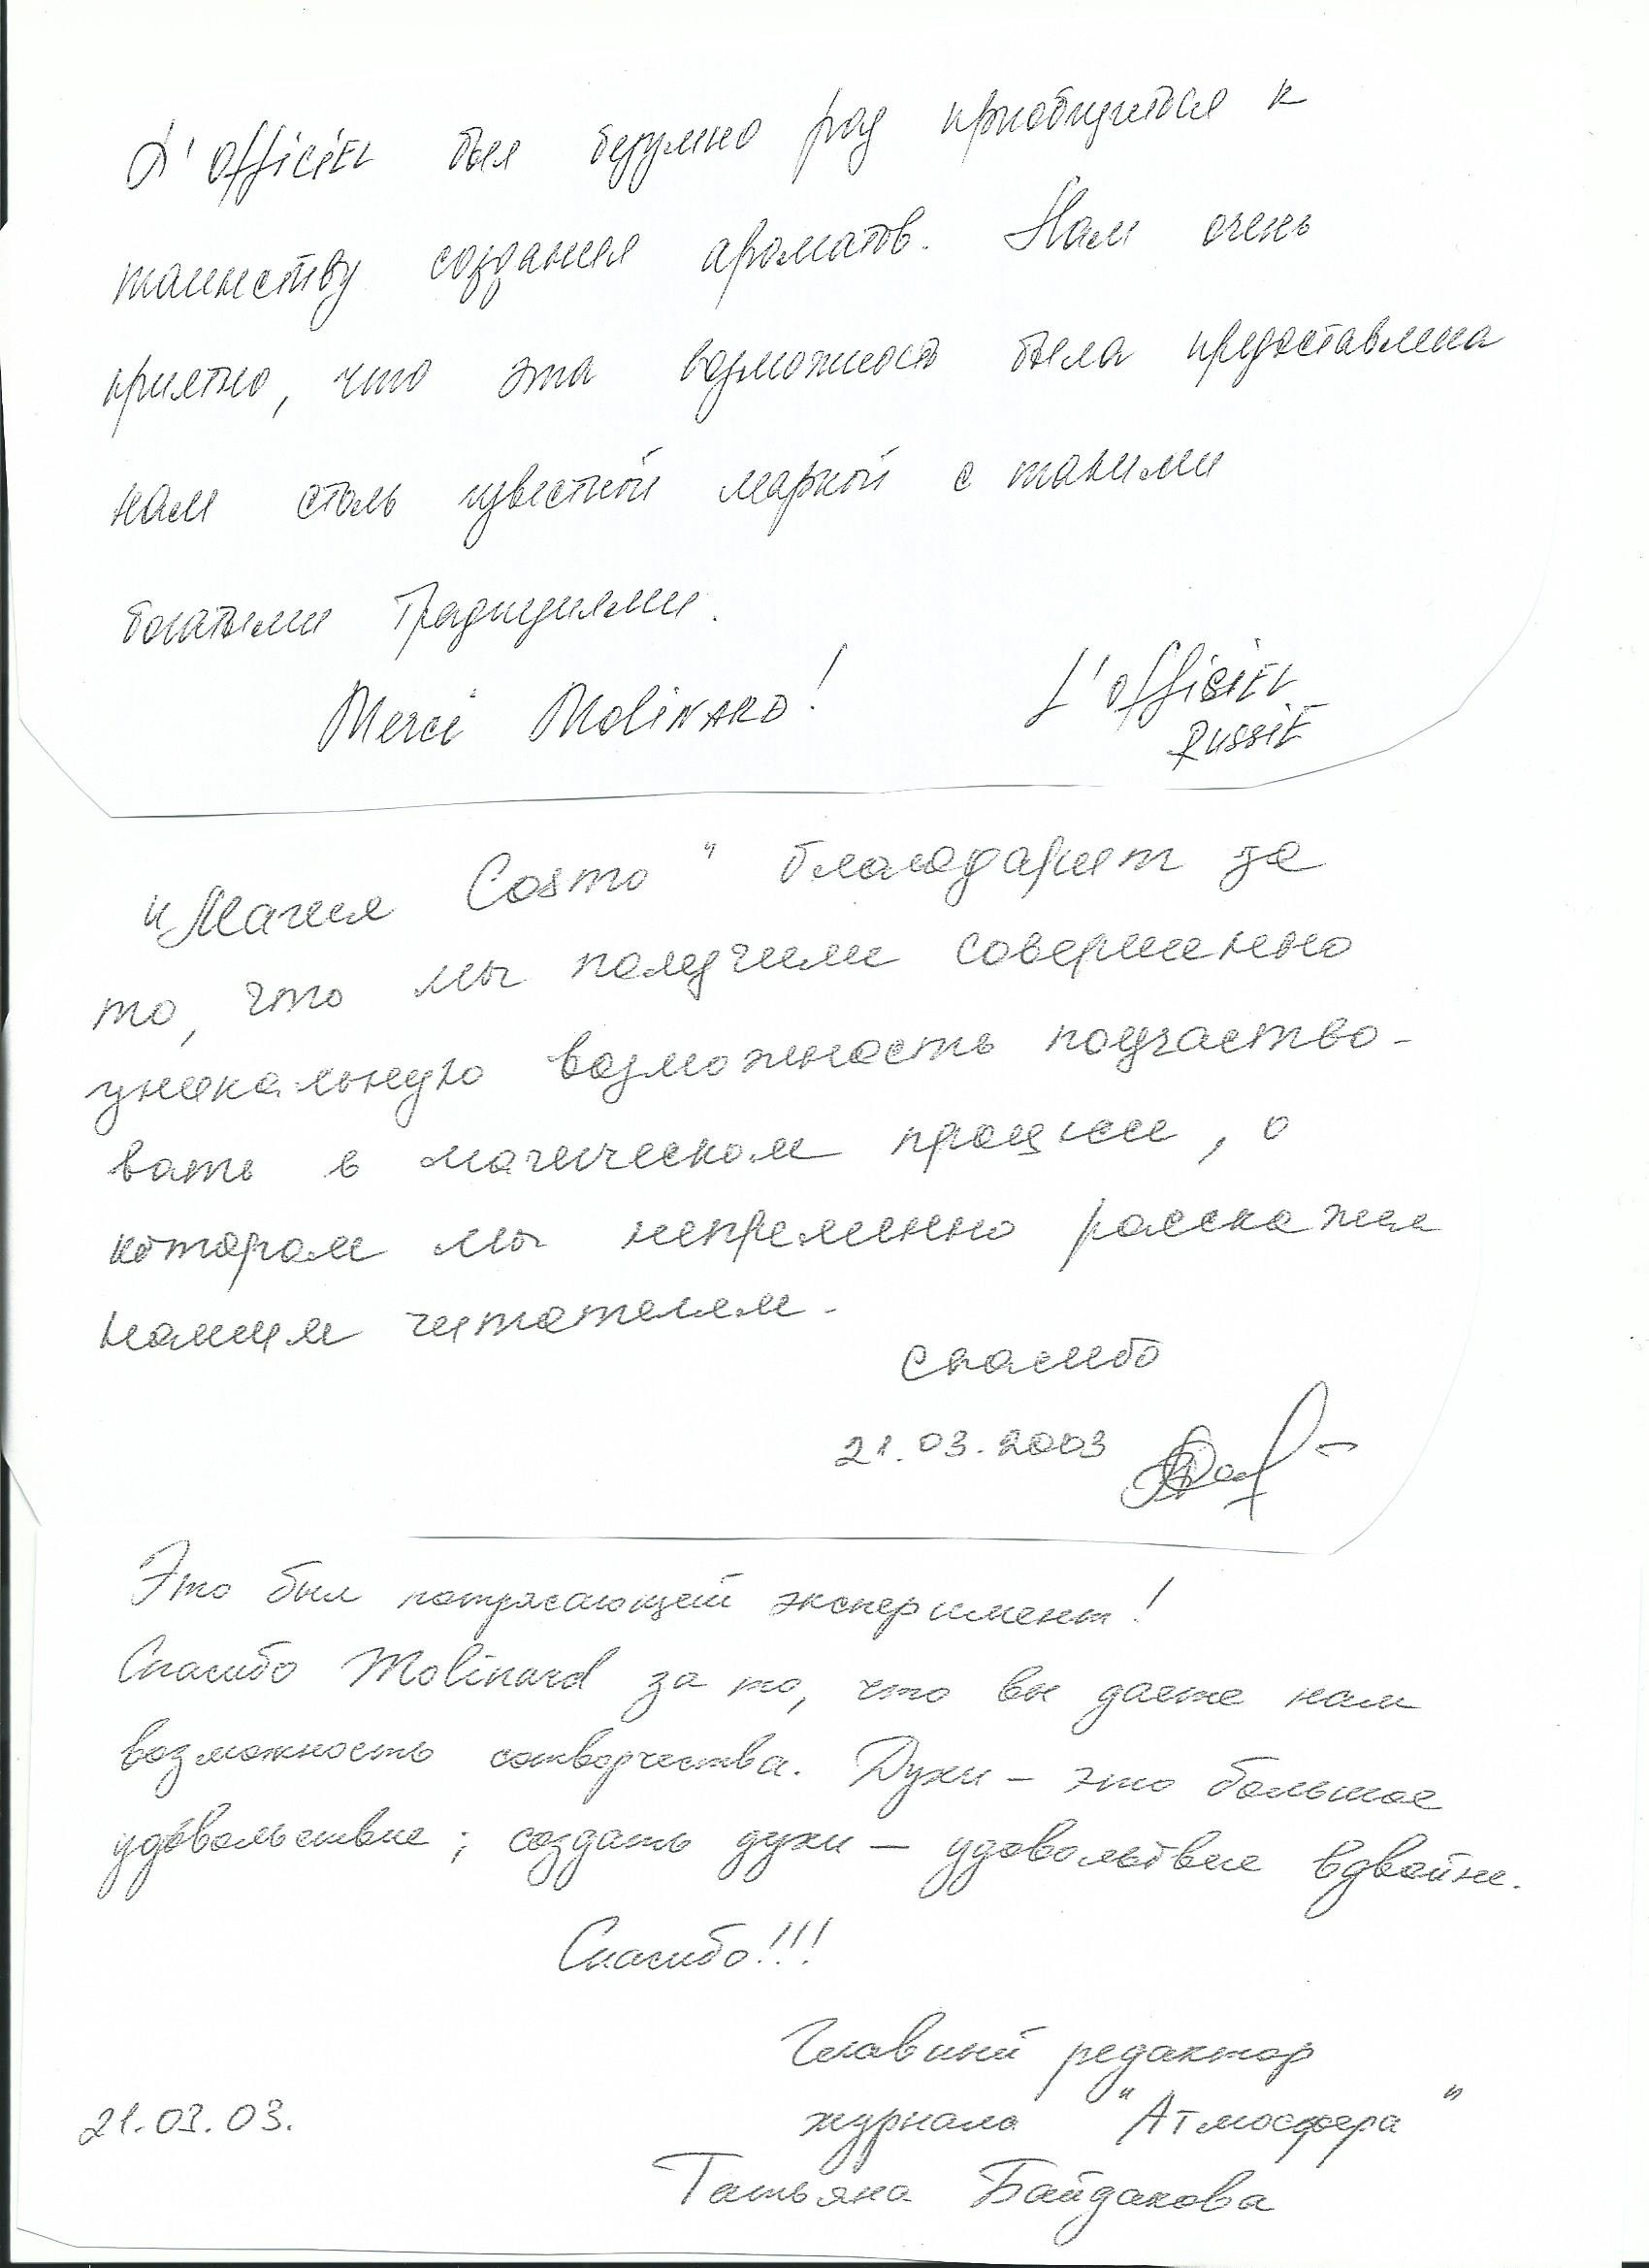 L'OFFICIEL был безумно рад приобщиться к
таинству создания ароматов. Нам очень
приятно, что эта возможность была предоставлена
нам столь известной маркой с такими
богатыми традициями.
Merci MOLINARD!
L'OFFICIEL
RUSSIE
"Магия Cosmo" благодарит за
то, что мы получили совершенно
уникальную возможность поучаство-
вать в магическом процессе, о
котором мы непременно расскажем
нашим читателям.
Спасибо
21.03.2003
Это был потрясающий эксперимент!
Спасибо Molinard за то, что вы даете нам
возможность сотворчества. Духи – это большое
удовольствие; создать духи – удовольствие вдвойне.
Спасибо!!!
Главный редактор
журнала "Атмосфера"
21.03.03.
Татьяна Байдакова